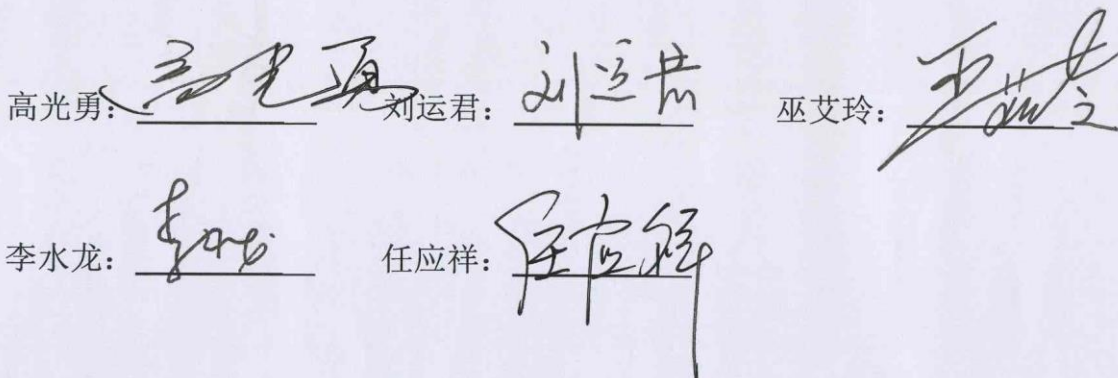 高光勇: 高光勇 刘运君: 刘运君 巫艾玲: 巫艾玲
李水龙: 李水龙 任应祥: 任应祥